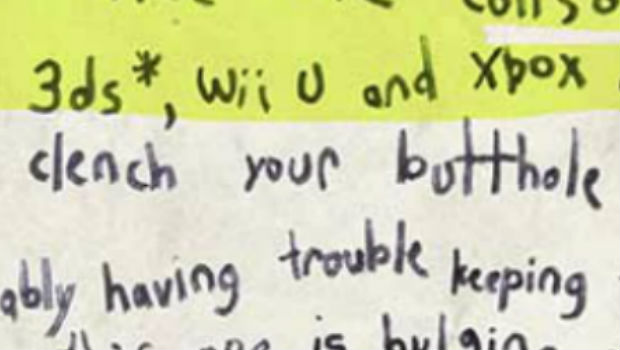 3ds*, Wii U and Xbox
clench your butthole
ably having trouble keeping
is